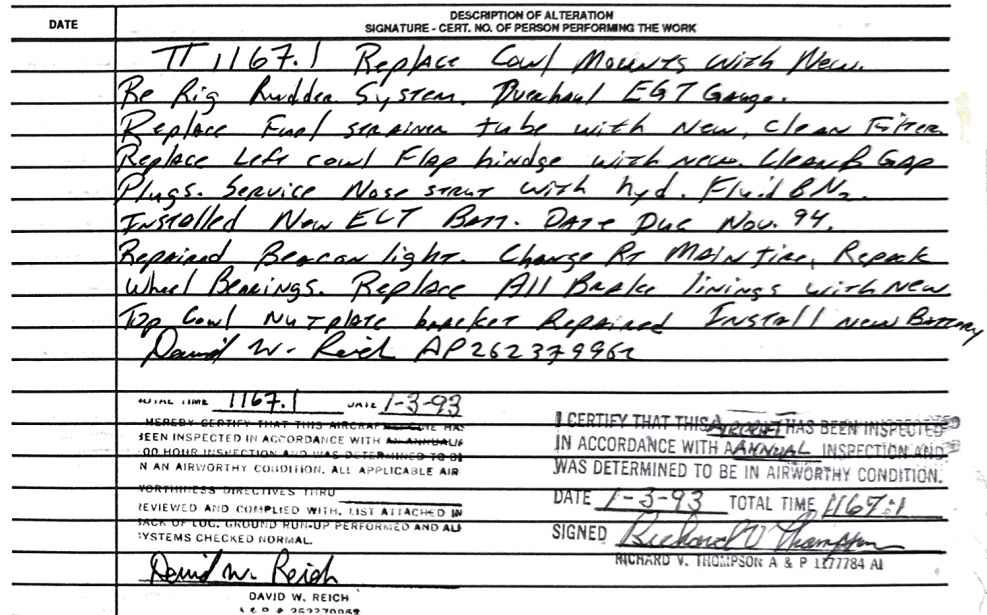 DATE
DESCRIPTION OF ALTERATION
SIGNATURE - CERT. NO. OF PERSON PERFORMING THE WORK
TT 1167.1 Replace Cowl Mounts with New.
Re Rig Rudder System. Overhaul EGT Gauge.
Replace Fuel strainer tube with New, Clean Filter
Replace Left cowl Flap hindge with new. Clean & Gap
Plugs. Service Nose strut with hyd. Fluid & N2.
Installed New ELT Batt. Date Due Nov. 94.
Repaired Beacon light. Change Rt Main tire, Repack
Wheel Bearings. Replace All Brake linings with New
Top Cowl Nutplate bracket Repaired Install new Battery
David W. Reich AP262379962
TOTAL TIME 1167.1 DATE 1-3-93
I HEREBY CERTIFY THAT THIS AIRCRAFT HAS
BEEN INSPECTED IN ACCORDANCE WITH AN ANNUAL/
100 HOUR INSPECTION AND WAS DETERMINED TO BE
IN AN AIRWORTHY CONDITION. ALL APPLICABLE AIR
WORTHINESS DIRECTIVES THRU
REVIEWED AND COMPLIED WITH. LIST ATTACHED IN
BACK OF LOG. GROUND RUN-UP PERFORMED AND ALL
SYSTEMS CHECKED NORMAL.
David W. Reich
DAVID W. REICH
A & P #
I CERTIFY THAT THIS AIRCRAFT HAS BEEN INSPECTED
IN ACCORDANCE WITH A ANNUAL INSPECTION AND
WAS DETERMINED TO BE IN AIRWORTHY CONDITION.
DATE 1-3-93 TOTAL TIME 1167.1
SIGNED Richard V Thompson
RICHARD V. THOMPSON A & P 1177784 AI